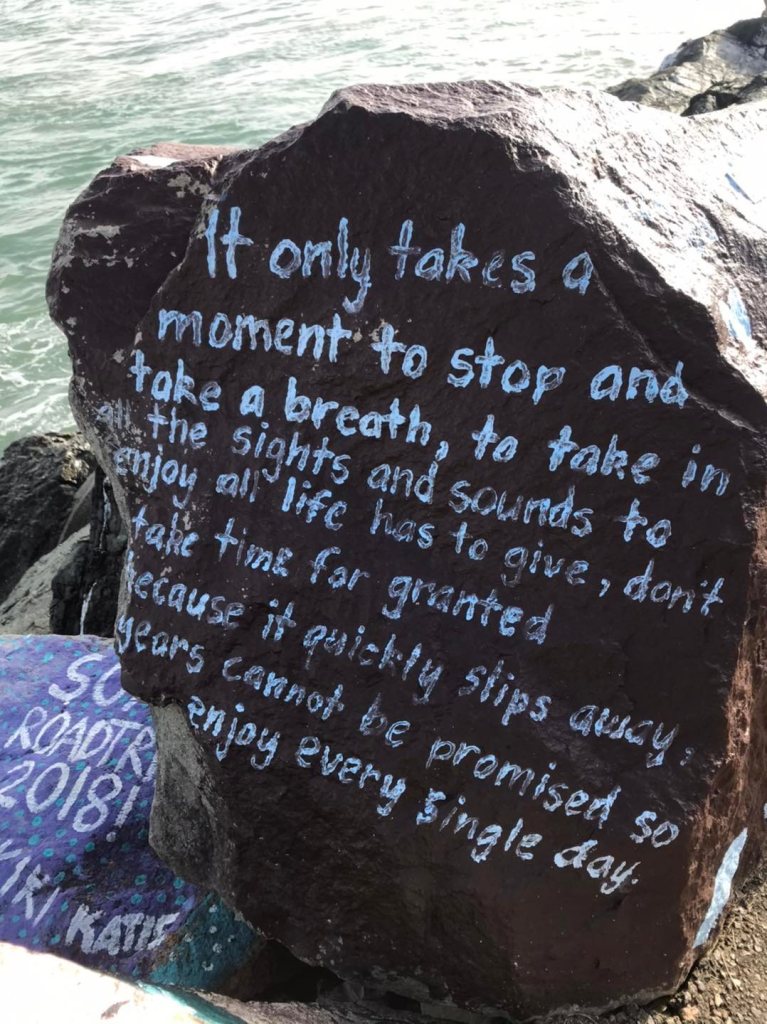 It only takes a
moment to stop and
take a breath, to take in
all the sights and sounds to
enjoy all life has to give, don't
take time for granted
because it quickly slips away,
years cannot be promised so
enjoy every single day.
ROADTRI
2018!
KATIE